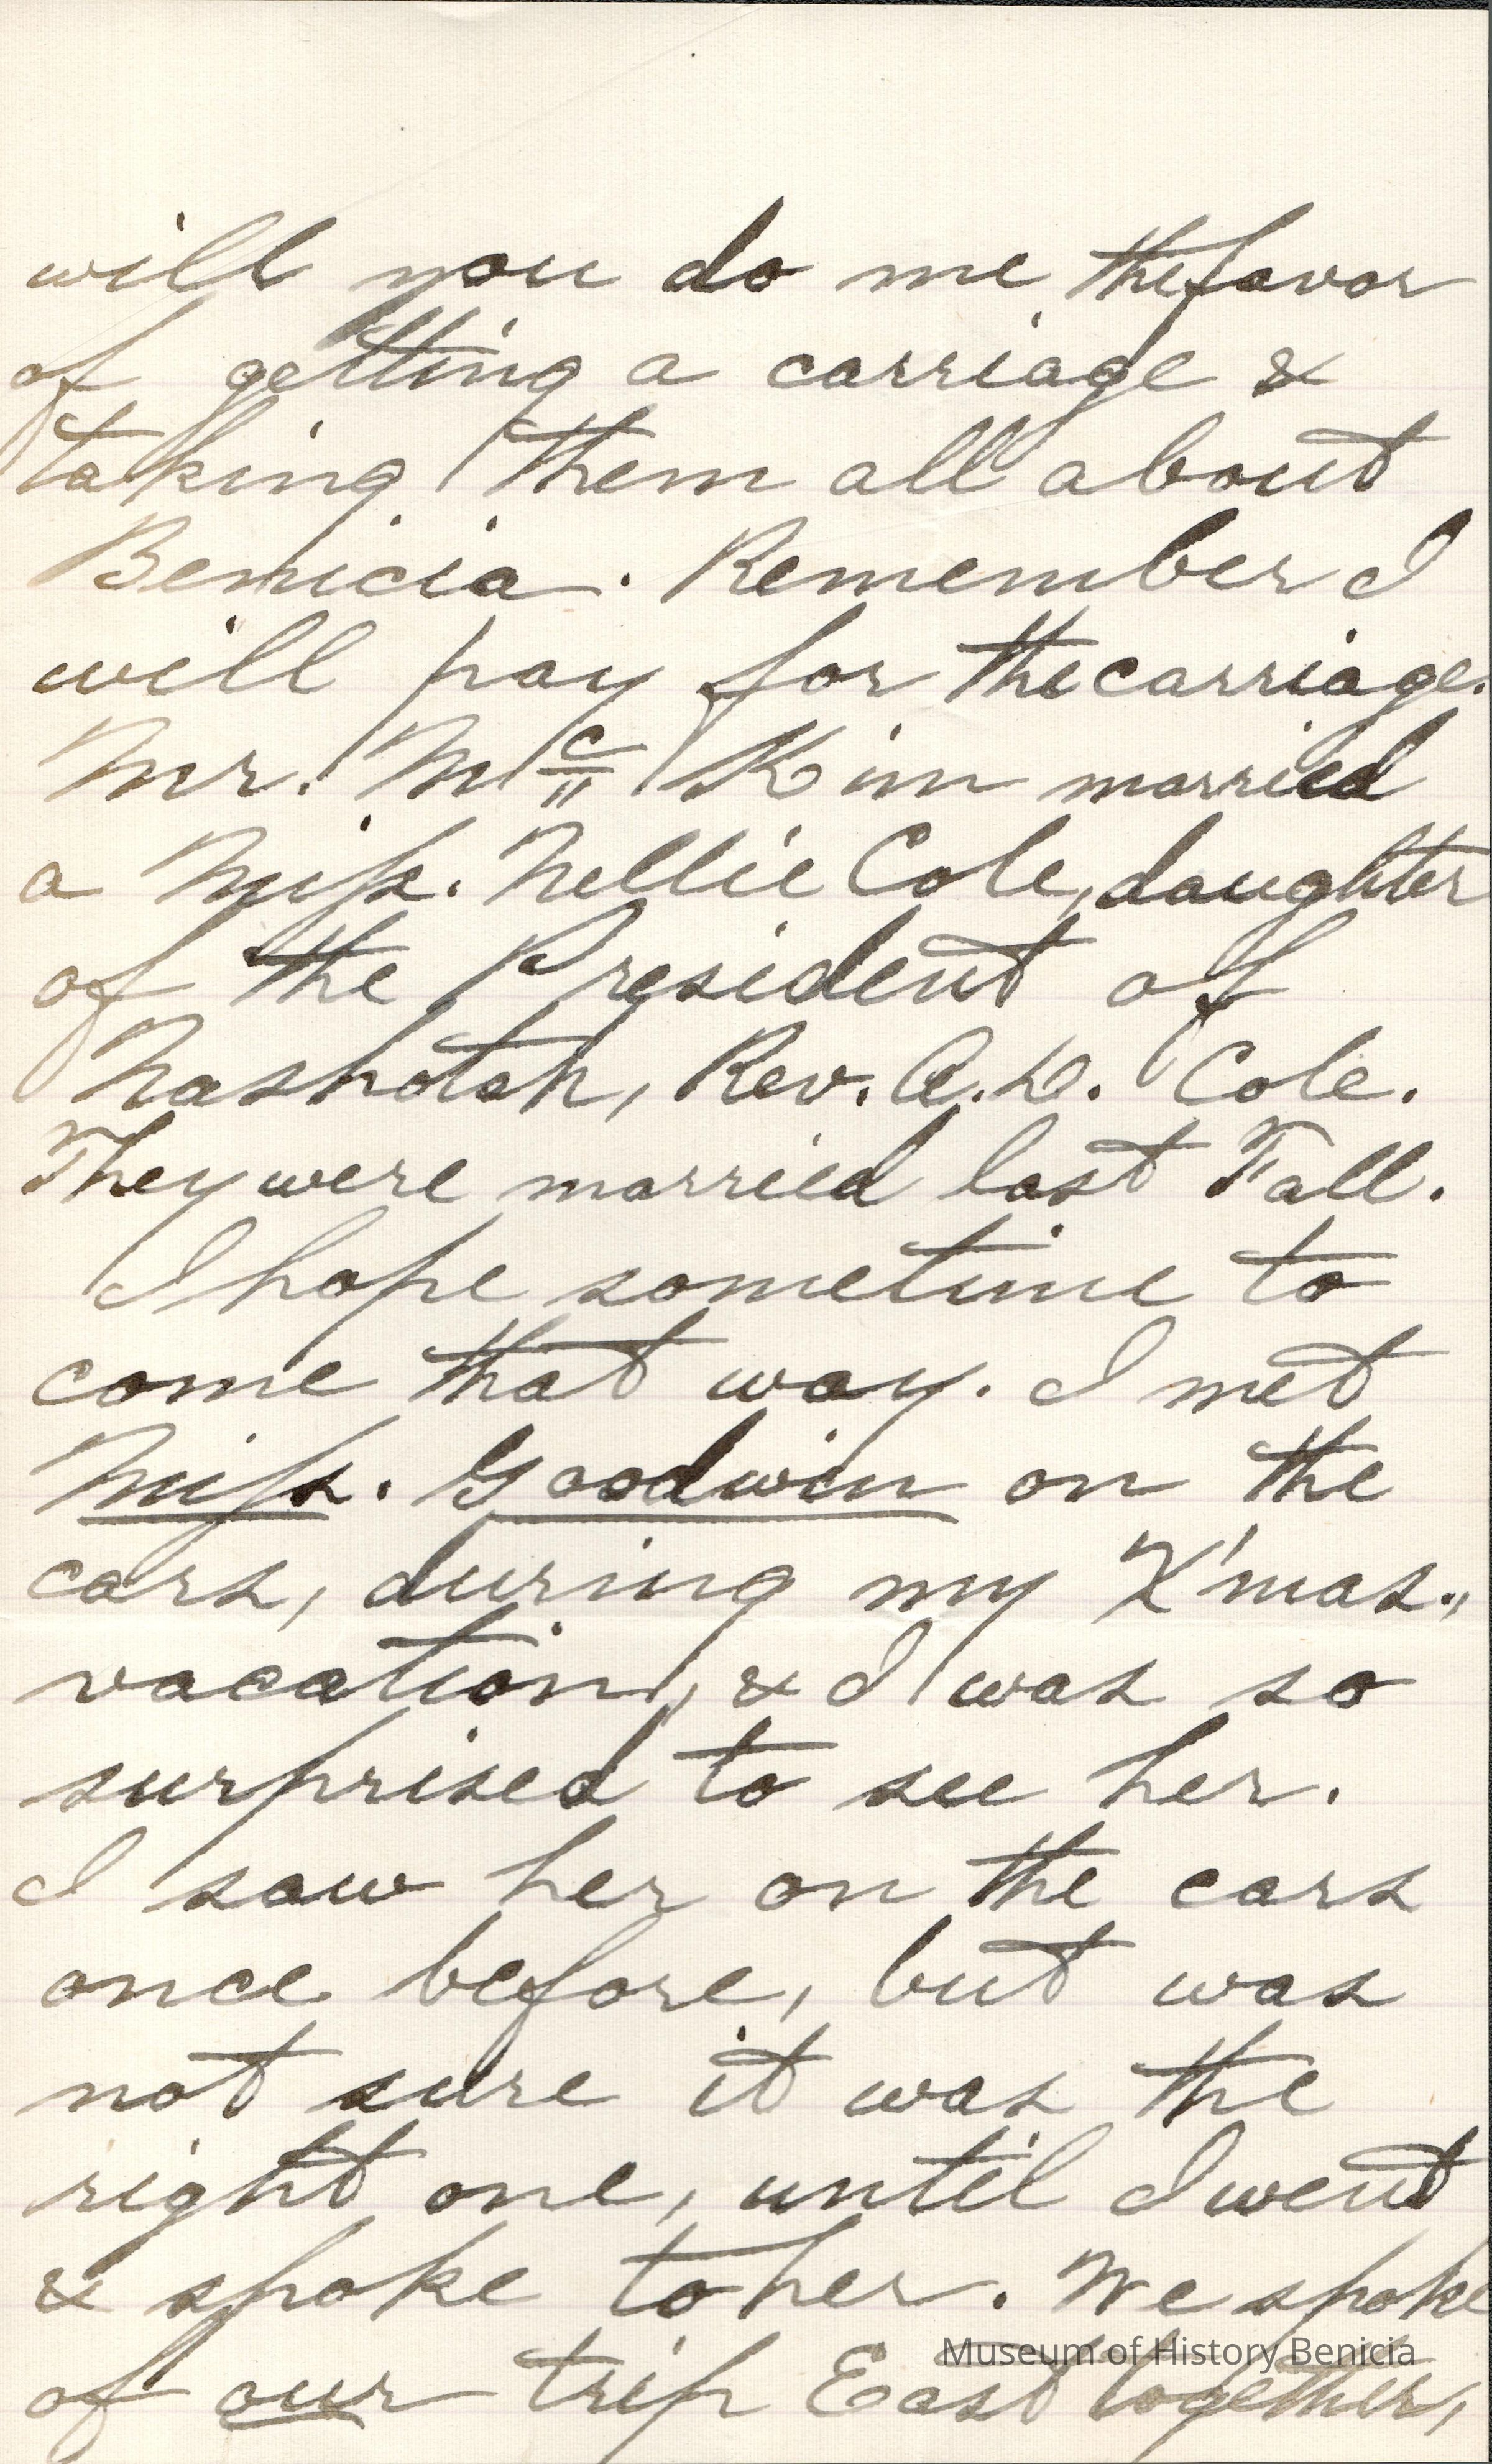 will you do me the favor
of getting a carriage &
taking them all about
Benicia. Remember I
will pay for the carriage.
Mr. Mc Kim married
a Miss. Nellie Cole, daughter
of the President of
Nashotah, Rev. A. D. Cole.
They were married last Fall.
I hope sometime to
come that way. I met
Miss. Goodwin on the
cars, during my X'mas.,
vacation, & I was so
surprised to see her.
I saw her on the cars
once before, but was
not sure it was the
right one, until I went
& spoke to her. We spoke
of our trip East together,
Museum of History Benicia